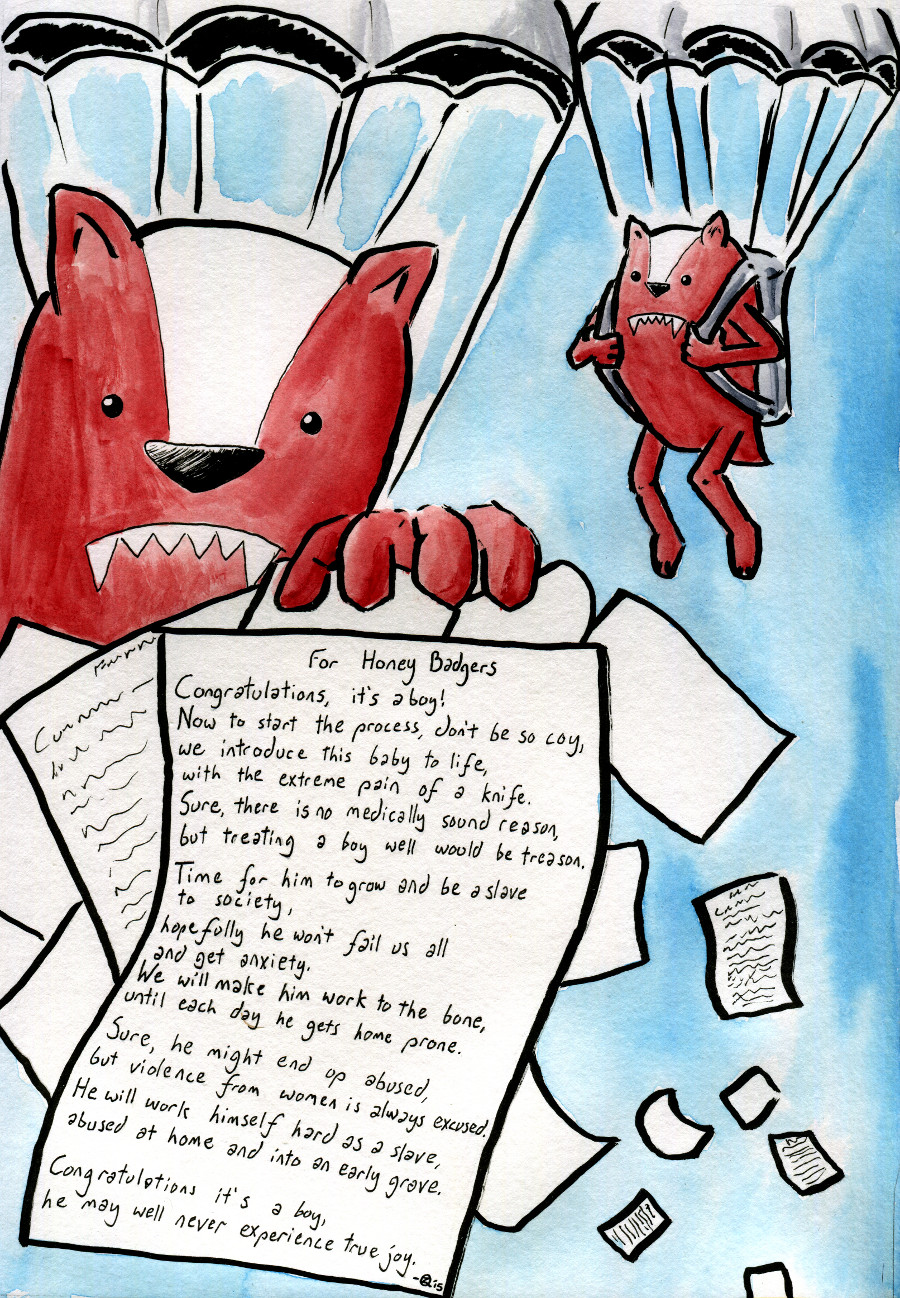 For Honey Badgers
Congratulations, it's a boy!
Now to start the process, don't be so coy,
we introduce this baby to life,
with the extreme pain of a knife.
Sure, there is no medically sound reason,
but treating a boy well would be treason.
Time for him to grow and be a slave
to society,
hopefully he won't fail us all
and get anxiety.
We will make him work to the bone,
until each day he gets home prone.
Sure, he might end up abused,
but violence from women is always excused.
He will work himself hard as a slave,
abused at home and into an early grave.
Congratulations it's a boy,
he may well never experience true joy.